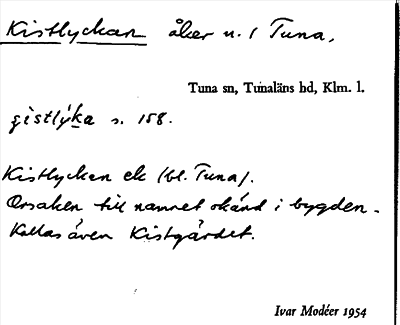 Kistlyckan åker n. 1 Tuna.
Tuna sn, Tunaläns hd, Klm. l.
s. 158.
Kistlyckan ek (bl. Tuna).
Orsaken till namnet okänd i bygden.
Kallas även Kistgärdet.
Ivar Modéer 1954